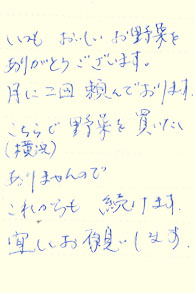 いつも おいしい お野菜を
ありがとうございます。
月に二回 頼んでおります.
こちらで 野菜を 買いたい
(横浜)
ありませんので
これからも 続けます.
宜しくお願いします.